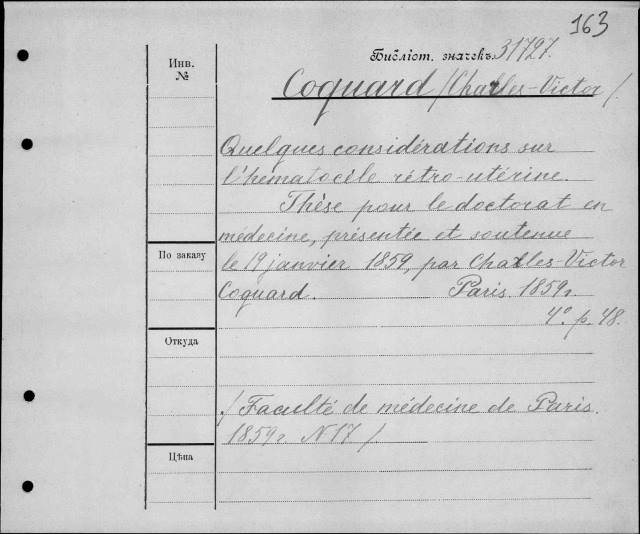 163
Библіот. значекъ 31727.
Инв.
№
Coquard /Charles-Victor/.
Quelques considérations sur
l'hématocèle rétro-utérine.
Thèse pour le doctorat en
médecine, présentée et soutenue
По заказу
le 19 janvier 1859, par Charles-Victor
Coquard. Paris. 1859г.
4º p. 48.
Откуда
/Faculté de médecine de Paris.
1859г. N17/.
Цѣна